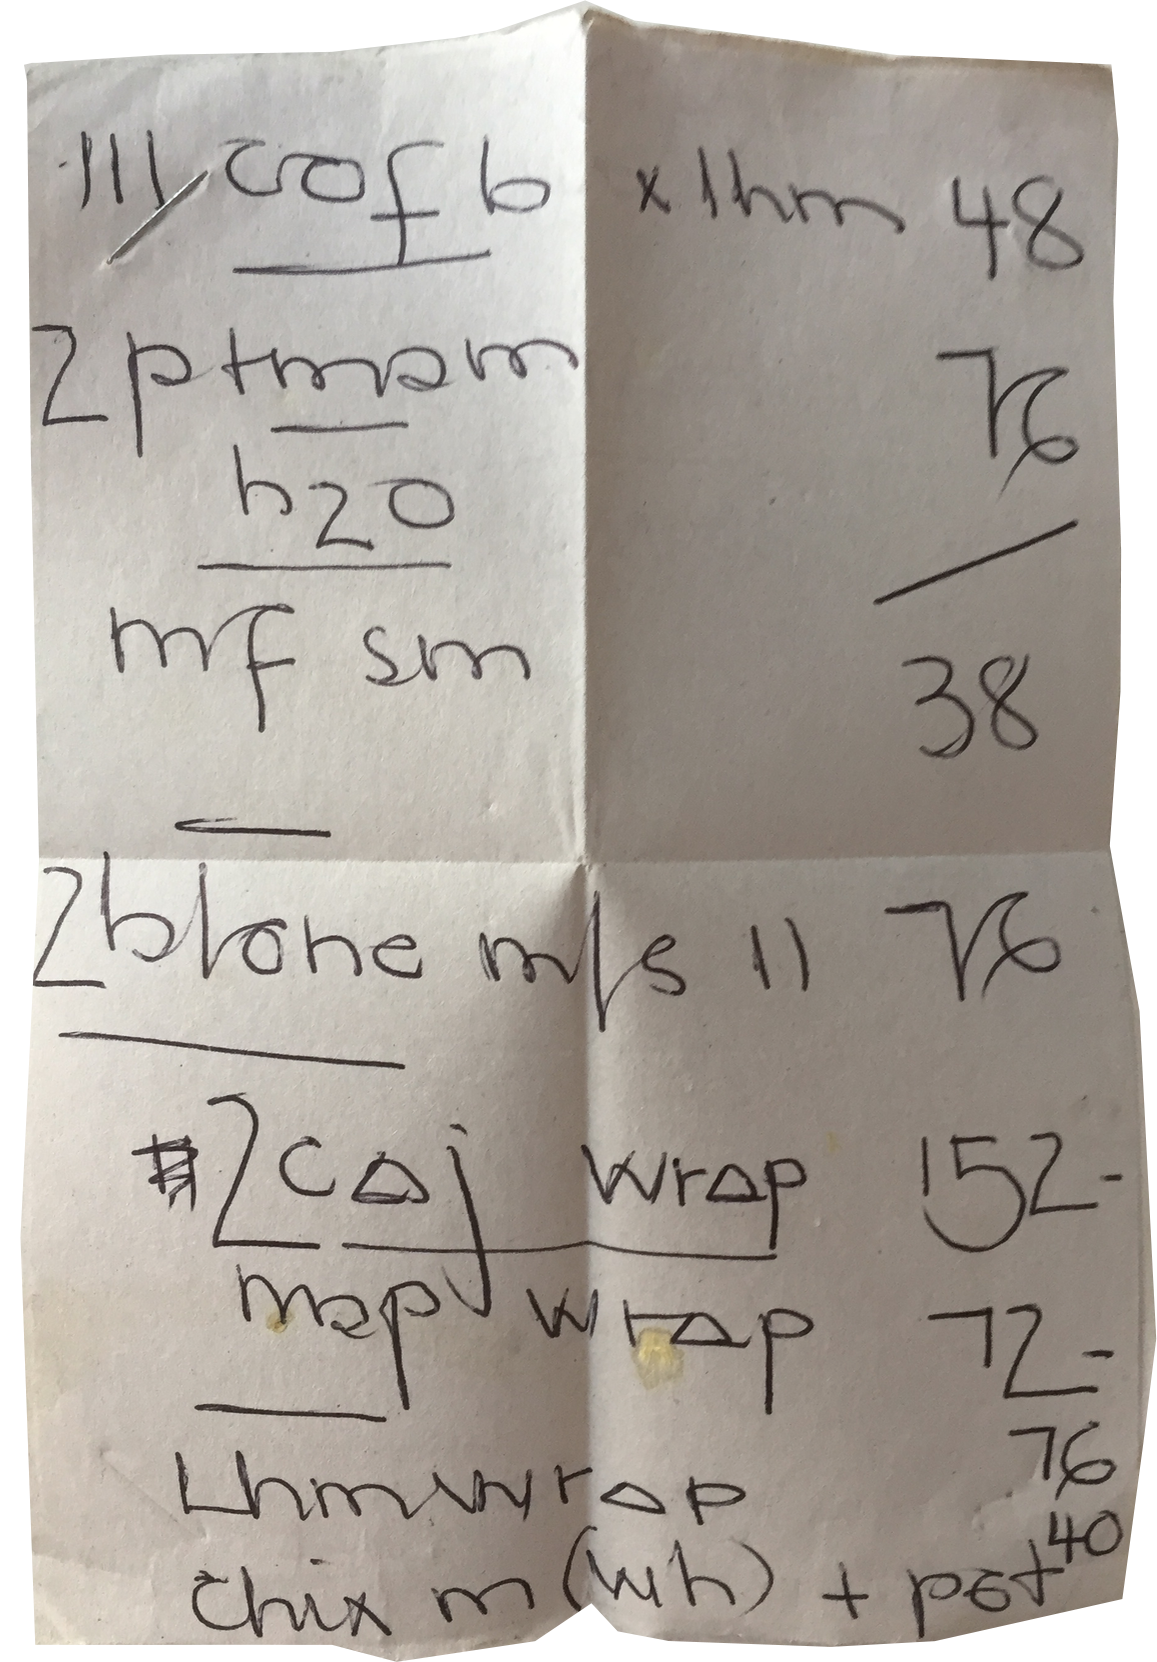 111/ cof b x 1hm 48
2 ptmpm 76
h20
mf sm 38
2 blone m/s 11 76
2 caj wrap 152-
map wrap 72-
Lhm wrap 76
chix m (wh) + pot 40